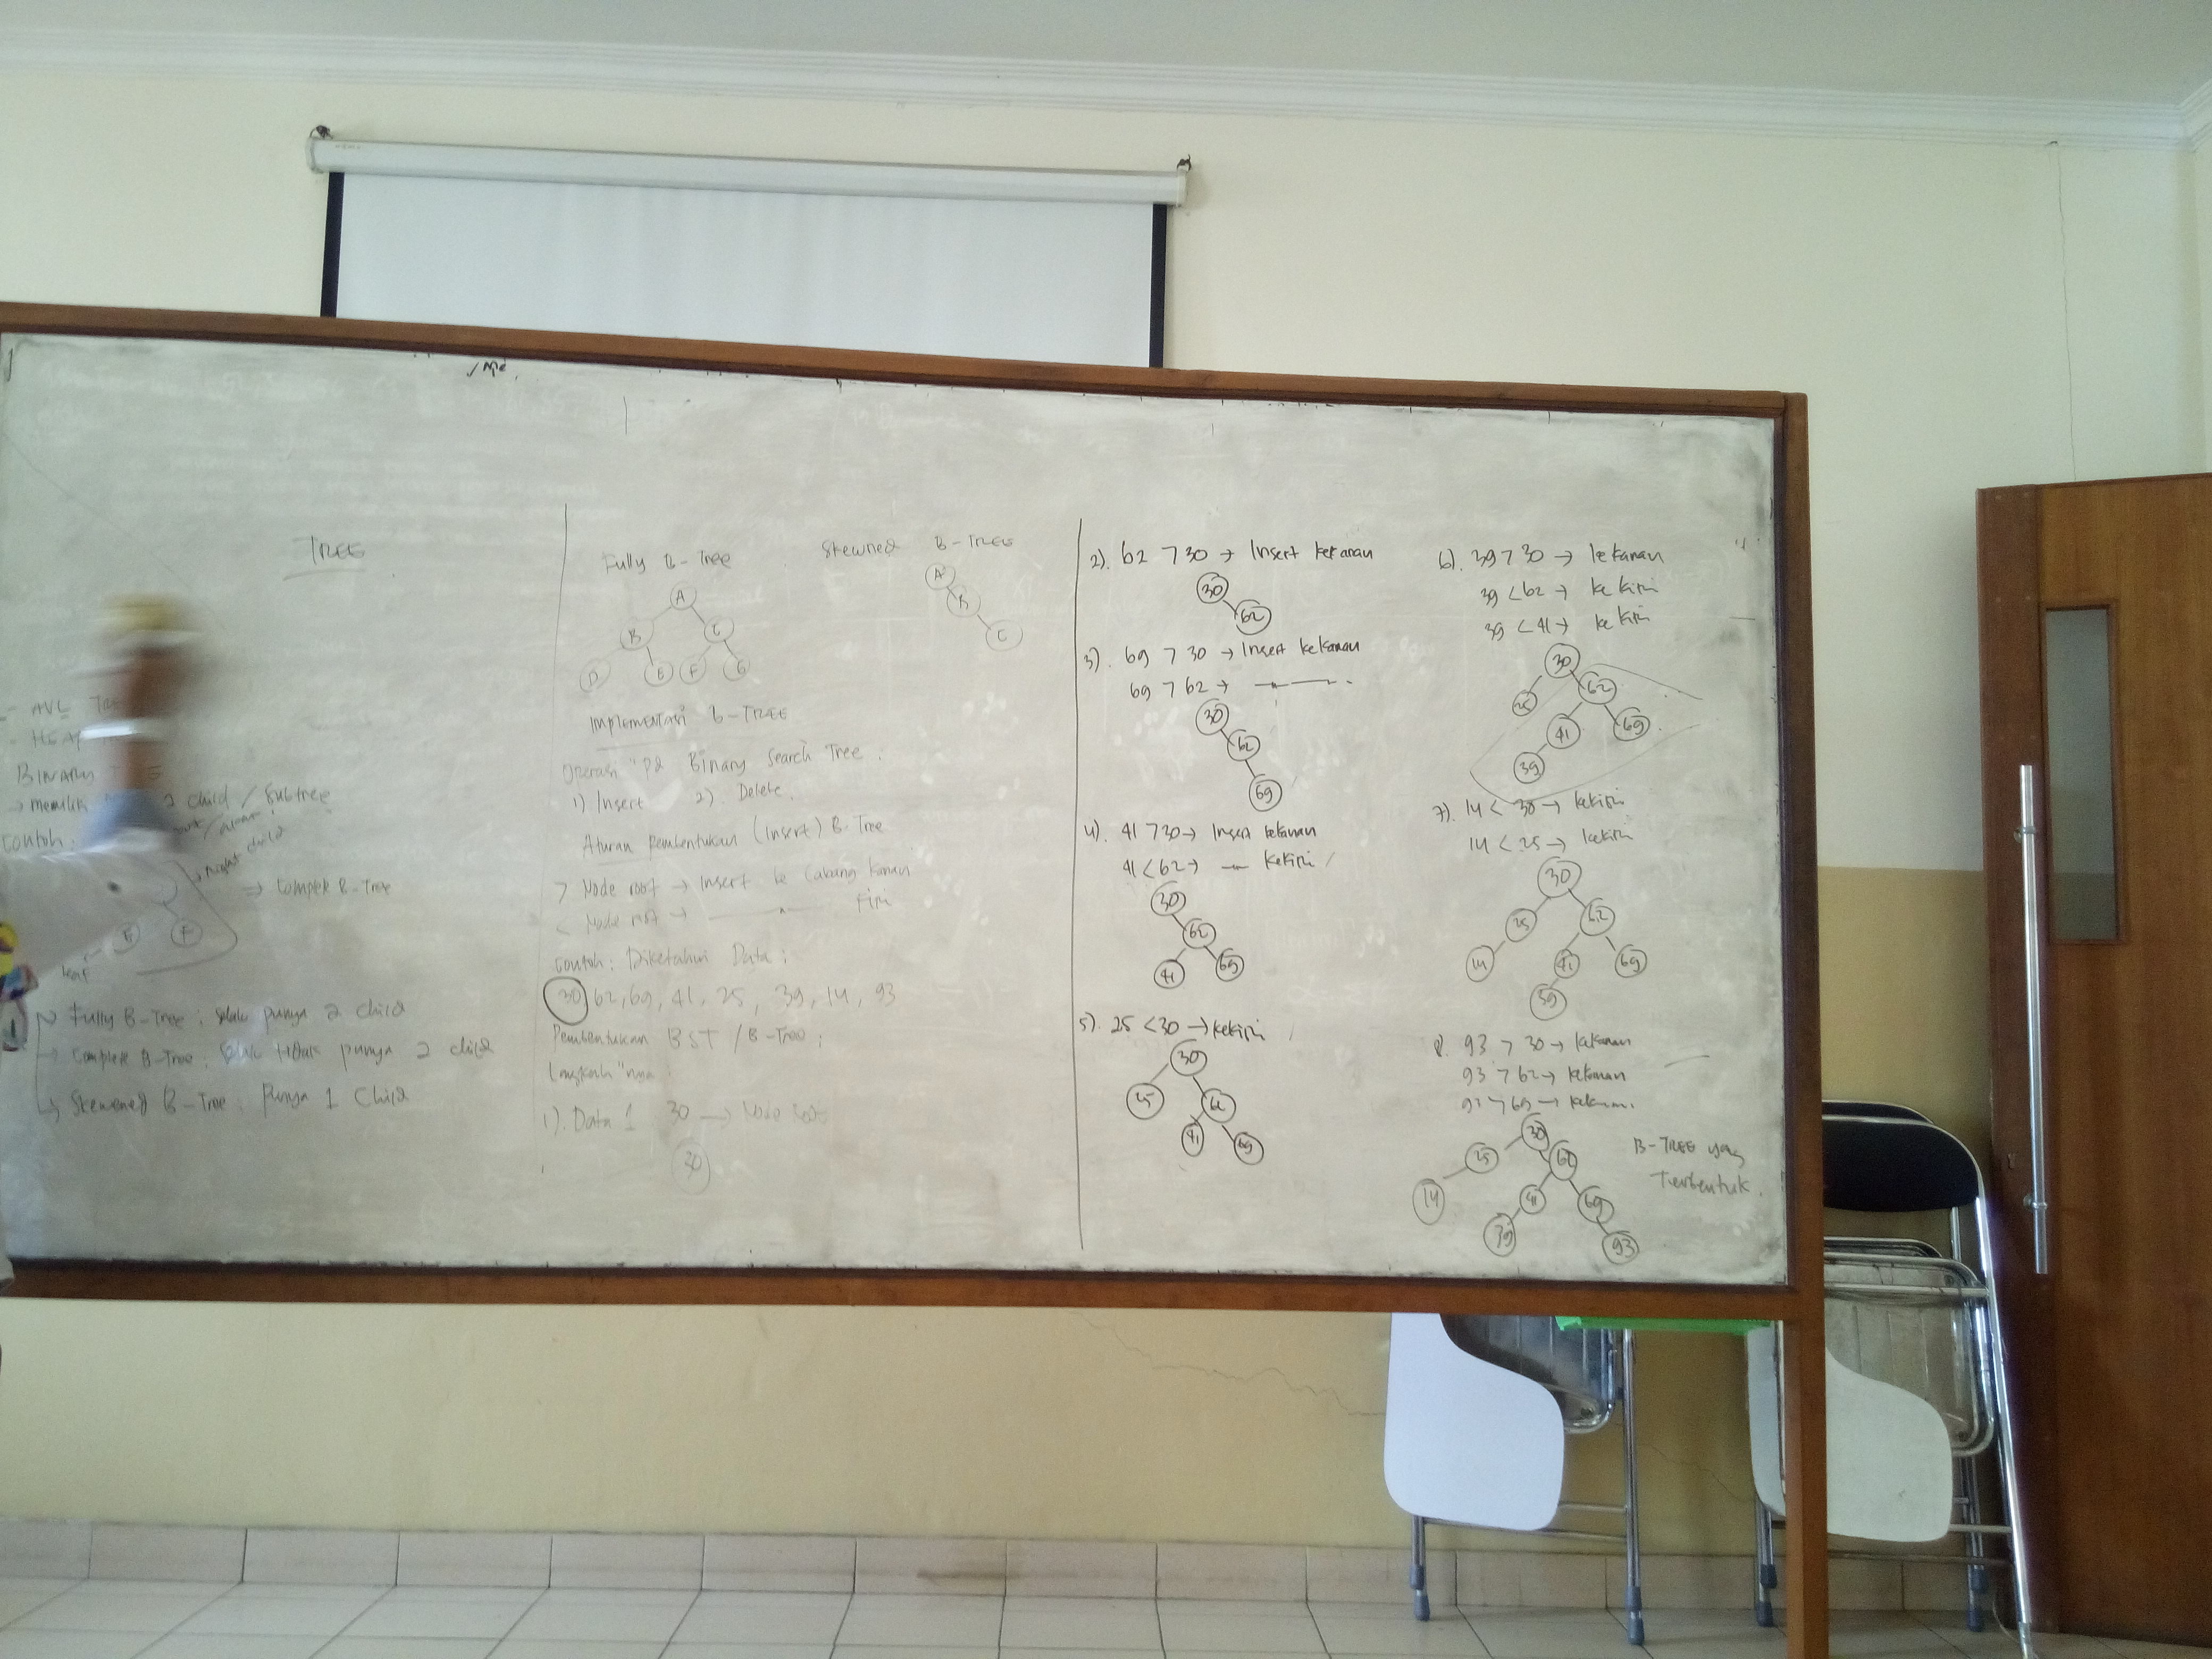 TREE
- AVL
BINARY
→ memilik 2 child / subtree
Contoh:
Right child
→ Complek B-Tree
F
leaf
→ Fully B-Tree : punya 2 child
→ Complete B-Tree : tidak punya 2 child
→ Skewned B-Tree : Punya 1 Child
Fully B-Tree
A
B C
D E F G
Skewned B-TREE
A
B
C
Implementasi B-TREE
Operasi "pd Binary Search Tree :
1) Insert 2). Delete.
Aturan pembentukan (Insert) B-Tree
> Node root → Insert ke Cabang kanan
< Node root → —〃— kiri
Contoh : Diketahui Data :
30, 62, 69, 41, 25, 39, 14, 93
Pembentukan BST / B-Tree :
Langkah "nya :
1). Data 1 : 30 → Node Root
30
2). 62 > 30 → Insert kekanan
30
62
3). 69 > 30 → Insert kekanan
69 > 62 → —〃—
30
62
69
4). 41 > 30 → Insert kekanan
41 < 62 → — kekiri
30
62
41 69
5). 25 < 30 → kekiri
30
25 62
41 69
6). 39 > 30 → kekanan
39 < 62 → ke kiri
39 < 41 → ke kiri
30
25 62
41 69
39
7). 14 < 30 → kekiri
14 < 25 → kekiri
30
25 62
14 41 69
39
8. 93 > 30 → kekanan
93 > 62 → kekanan
93 > 69 → kekanan
30
25 62
14 41 69
39 93
B-TREE yang
Terbentuk.